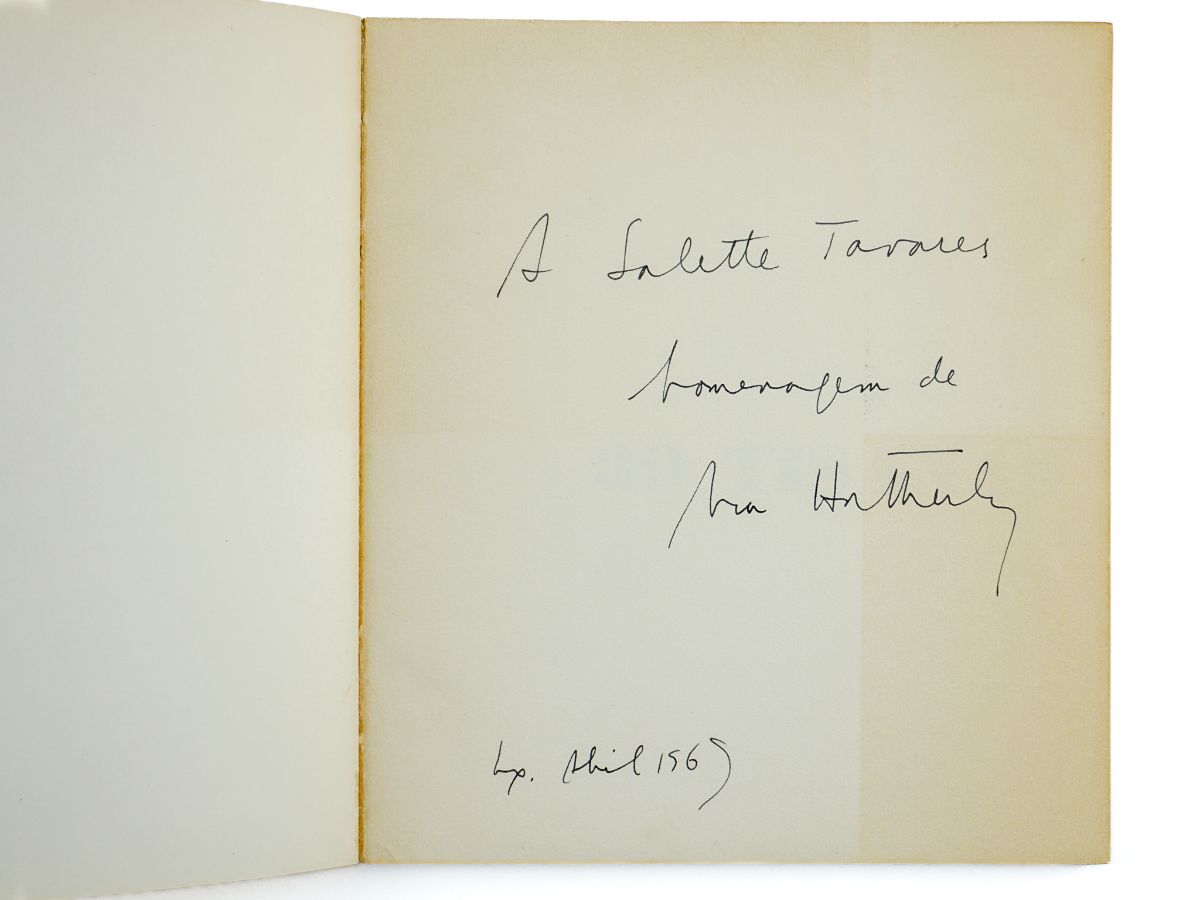 A Salette Tavares
homenagem de
Ana Hatherly
Lx. Abril 1969